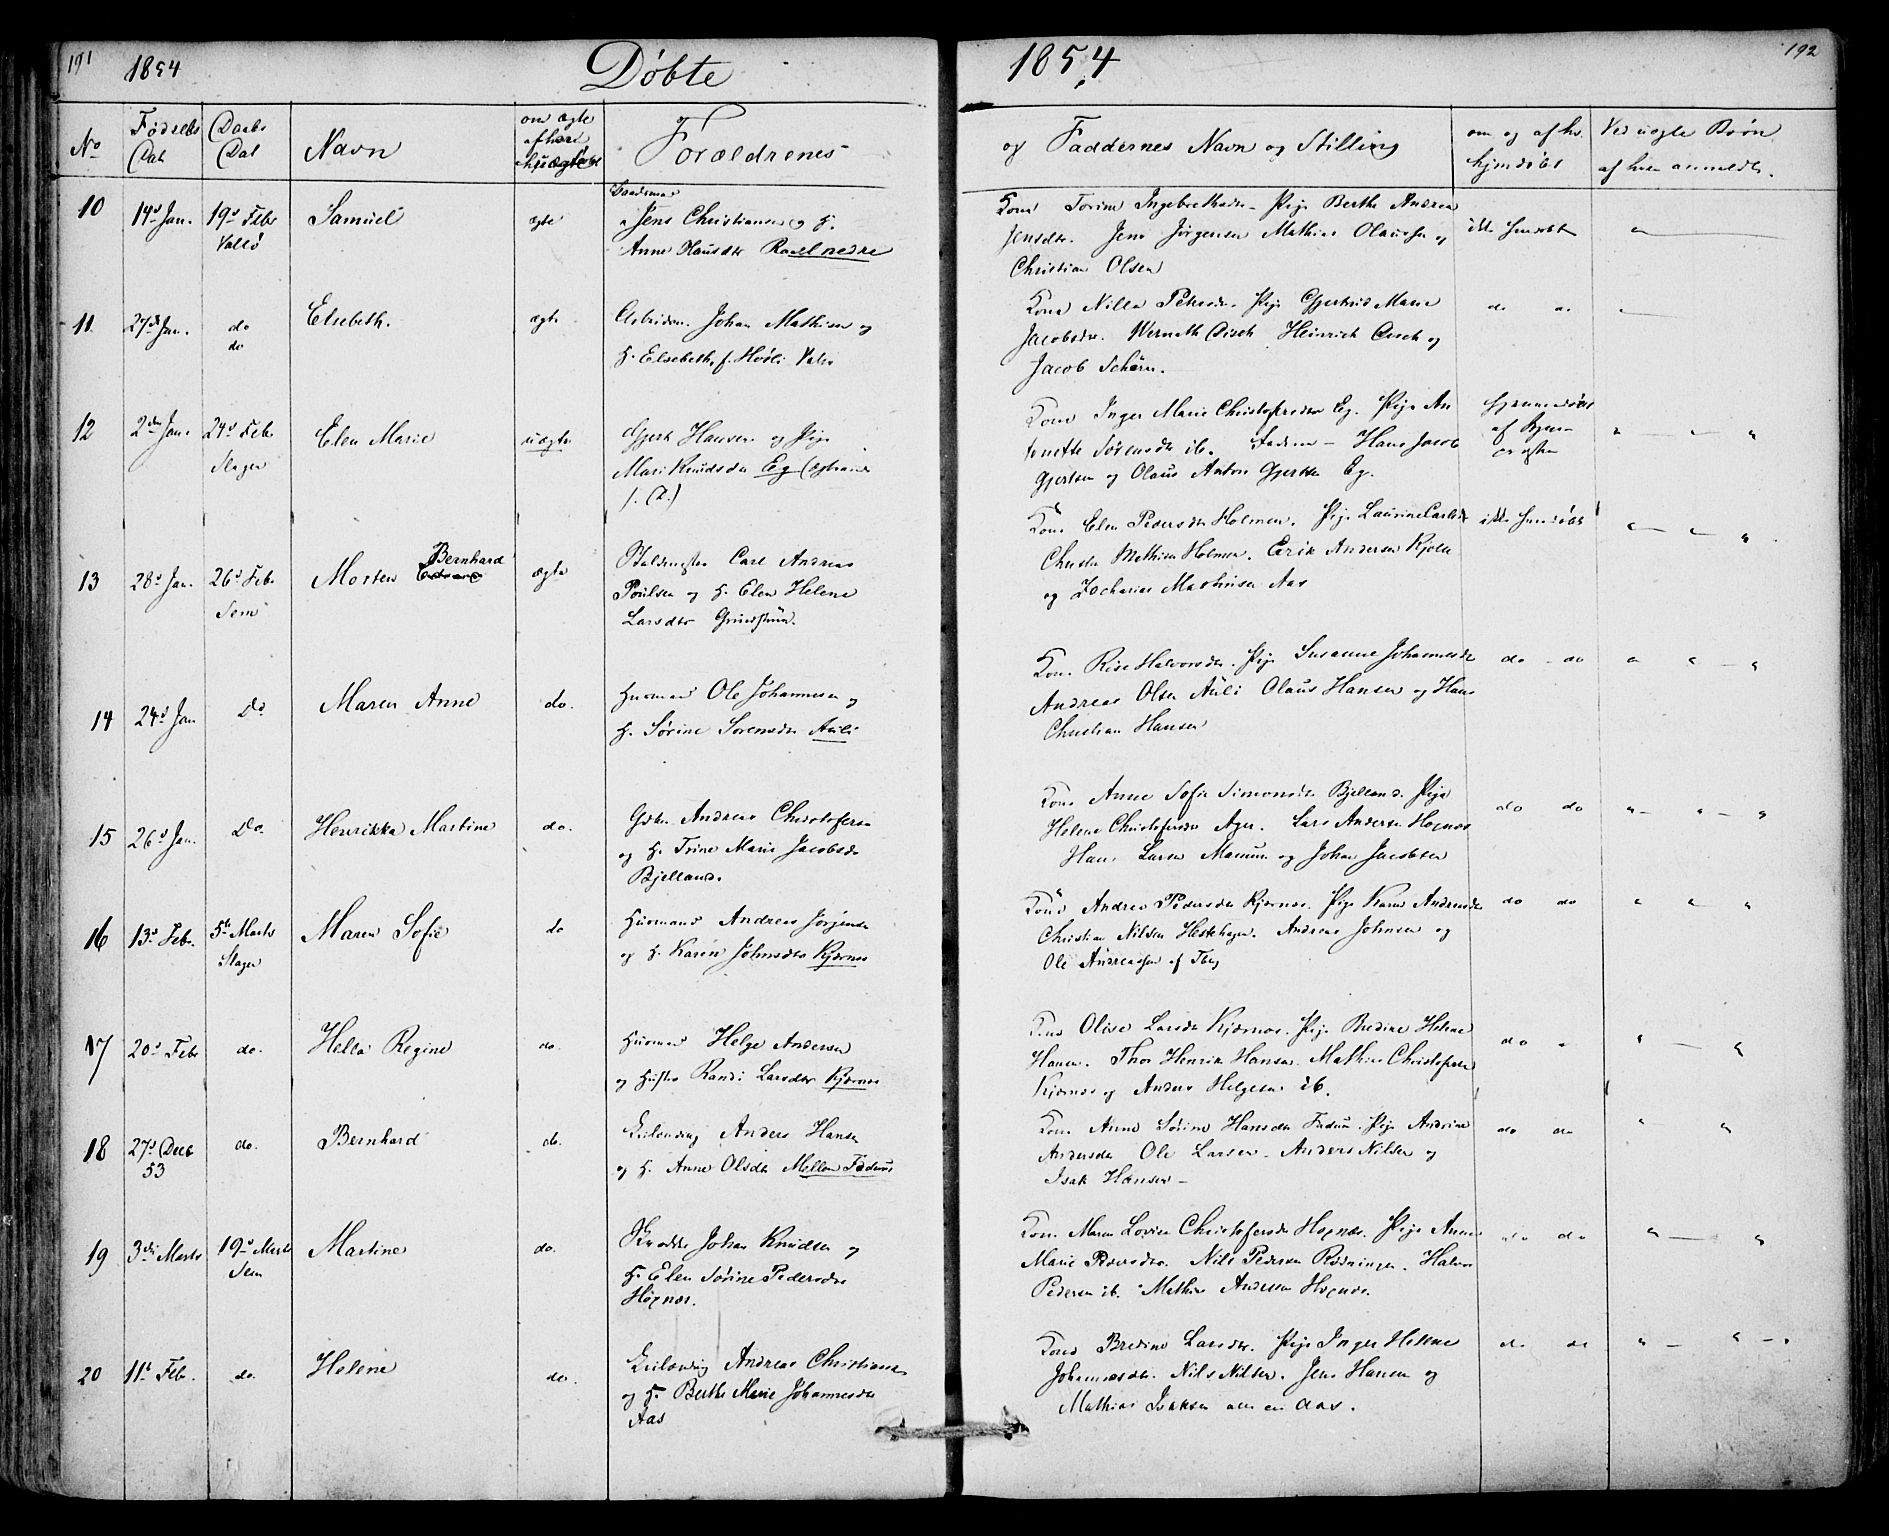 191 1854 Døbte
1854 192
No Fødsels Dat Daabs Dat Navn om ægte Forældrenes
og Faddernes Navn og Stilling om og af hv. hjemdøbt Ved uægte Børn af hvem anmeldt.
10 14d Jan. 19d Febr Vallø Samuel ægte
Jens Christiansen og H.
Anne Hansdtr Ravel nedre
Kone Torine Ingebrethsdr - Pige Berthe Andrea
Jensdtr. Jens Jørgensen Mathias Olaussen og
Christian Olsen
ikke hjemdøbt
11 27d Jan. do do Elsebeth. ægte
Johan Mathisen og
H. Elsebeth, f.
Kone Nilla Petersdr Pige Gjertrud Marie
Jacobsdr. Heinrich og
Jacob
do do
12 2den Jan. 24d Feb. Slagen Elen Marie uægte
Gjert Hansen og Pige
Mari Knudsdtr Eg
Kone Inger Marie Christofersdtr Eg. Pige An
tonette Sørensdtr ib. Hans Jacob
Gjertsen og Olaus Anton Gjertsen Eg.
hjemmedøbt
af
13 28d Jan. 26d Feb. Sem Morten Bernhard ægte
Carl Andreas
Poulsen og H. Elen Helene
Larsdtr
Kone Elen Pedersdtr Holmen. Pige Laurine
Mathisen Holmen. Erik Andersen
og Zacharias Mathisen Aas
ikke hjemdøbt
14 24d Jan Do Maren Anne do.
Husmand Ole Johannesen og
H. Sørine Sørensdtr Auli
Kone Rise Halvorsdtr. Pige Susanne Johannesdtr
Andreas Olsen Auli Olaus Hansen og Hans
Christian Hansen
do - do
15 26d Jan. Do. Henrikka Martine do.
Gdbr. Andreas Christofersen
og H. Trine Marie Jacobsdr
Bjelland.
Kone Anne Sofie Simonsdtr Bjelland. Pige
Helene Christofersdtr Lars Andersen Høgnæs
Hans Larsen og Johan Jacobsen
do do
16 13d Feb. 5te Marts Slagen Maren Sofie do
Husmand Andreas Jørgensen
og H. Karen Johnsdtr Kjærnes
Kone Andrea Pedersdtr Kjærnes. Pige Karen Andrensdtr
Christian Nilsen Hestehagen. Andreas Johnsen og
Ole Andreassen af Tbg
do do
17 20d Febr do. Hella Regine do.
Husmand Helge Andersen
og Hustru Randi Larsdtr Kjærnes
Kone Olise Larsdtr Kjærnes. Pige Bredine Helene
Hansen. Thor Henrik Hansen. Mathias Christofersen
Kjærnes og Anders Helgesen ib.
do
18 27d Decb 53 do. Bernhard do.
Anders Hansen
og H. Anne Olsdtr Mellem Fadum
Kone Anne Sørine Hansdtr Fadum. Pige Andrine
Andersdtr Ole Larsen. Anders Nilsen og
Isak Hansen -
do do
19 3die Marts 19d Marts Sem Martine do.
Johan Knudsen og
H. Elen Sørine Pedersdtr
Høgnæs.
Kone Maren Lovise Christofersdtr Høgnæs. Pige Anne
Marie Pedersdtr. Nils Pedersen Rødningen. Halvor
Pedersen ib. Mathias Andersen Høgnæs.
do do
20 11te Feb. do. Helene do.
Andreas Christiansen
og H. Berthe Marie Johannesdtr
Aas
Kone Bredine Larsdtr. Pige Inger Helene
Johannesdtr. Nils Nilsen. Jens Hansen og
Mathias Isaksen alle em Aas.
do do